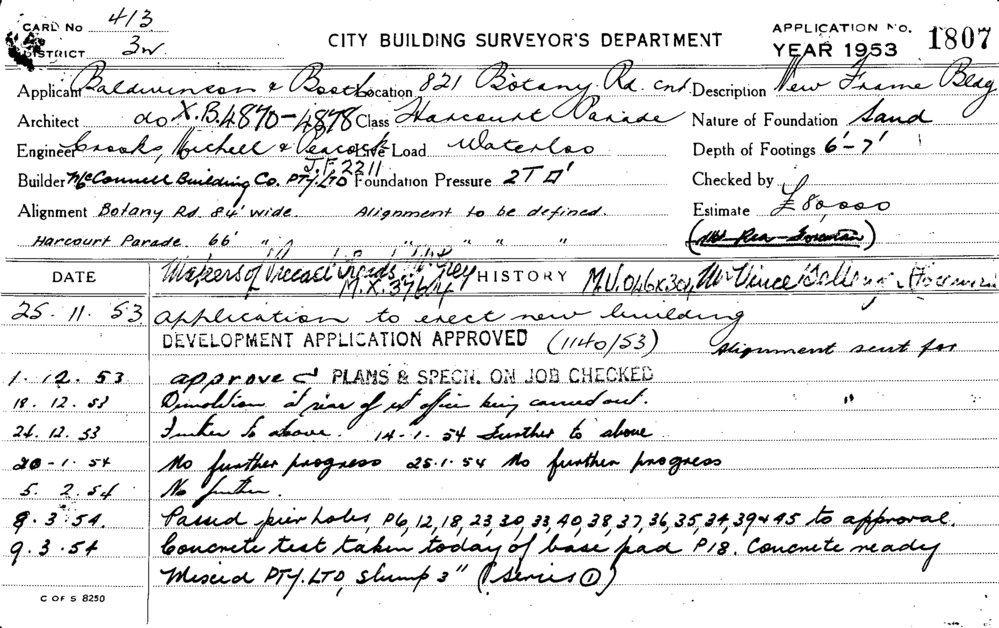 CARD No 413
DISTRICT 3W.
CITY BUILDING SURVEYOR'S DEPARTMENT
APPLICATION No.
YEAR 1953 1807
Applicant Baldwinson & Booth Location 821 Botany Rd. cnr. Description New Frame Bldg
Architect do X.B.4870-4878 Class Harcourt Parade Nature of Foundation Sand
Engineer Crooks, Michell & Peacock Live Load Waterloo Depth of Footings 6'-7'
J.F. 2211
Builder McConnell Building Co. PTY. LTD Foundation Pressure 2T □' Checked by
Alignment Botany Rd. 84' wide. Alignment to be defined. Estimate £80,000
Harcourt Parade. 66' " " " " "
DATE Makers of Precast HISTORY M.U.046x304 Mr Vince
25.11.53 application to erect new building
DEVELOPMENT APPLICATION APPROVED (1140/53) Alignment sent for
1.12.53 approved PLANS & SPECN. ON JOB CHECKED
18.12.53 Demolition at rear of ext office being carried out. "
24.12.53 Further to above. 14-1-54 Further to above
20-1-54 No further progress 25.1.54 No further progress
5.2.54 No further.
9.3.54. Passed pier holes, P6, 12, 18, 23, 30, 33, 40, 38, 37, 36, 35, 34, 39 & 45 to approval.
9.3.54 Concrete test taken today of base pad P18. Concrete ready
Mixed PTY. LTD, Slump 3" (Series ①)
C OF S 8250